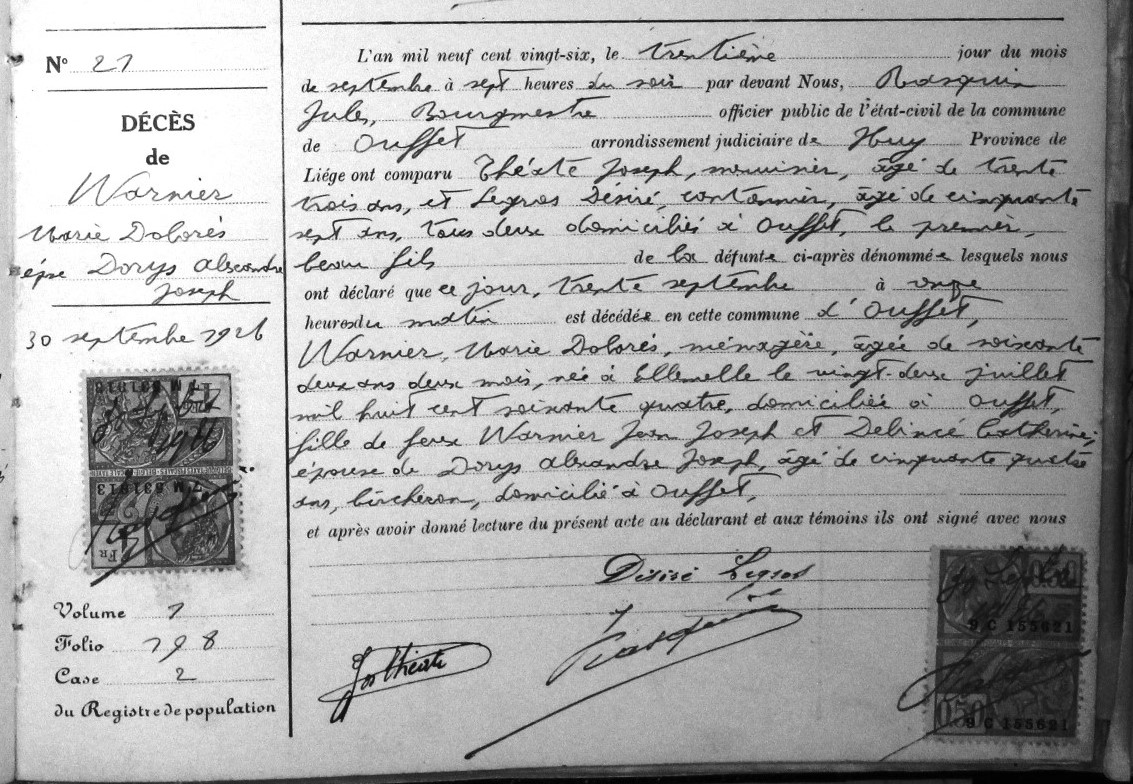 N° 21
DÉCÈS
de
Warnier
Marie Dolorés
épse Dorys Alexandre
Joseph
30 septembre 1926
Volume 1
Folio 198
Case 2
du Registre de population
L'an mil neuf cent vingt-six, le trentième jour du mois
de septembre à sept heures du soir par devant Nous, Rasquin
Jules, Bourgmestre officier public de l'état-civil de la commune
de Ouffet arrondissement judiciaire de Huy Province de
Liége ont comparu Théate Joseph, menuisier, âgé de trente
trois ans, et Legros Désiré, cantonnier, âgé de cinquante
sept ans, tous deux domiciliés à Ouffet, le premier,
beau fils de la défunte ci-après dénommée lesquels nous
ont déclaré que ce jour, trente septembre à onze
heures du matin est décédée en cette commune d'Ouffet,
Warnier, Marie Dolorés, ménagère, âgée de soixante
deux ans deux mois, née à Ellemelle le vingt-deux juillet
mil huit cent soixante quatre, domiciliée à Ouffet,
fille de feux Warnier Jean Joseph et Delincé Catherine,
épouse de Dorys Alexandre Joseph, âgé de cinquante quatre
ans, bûcheron, domicilié à Ouffet,
et après avoir donné lecture du présent acte au déclarant et aux témoins ils ont signé avec nous
Désiré Legros
Jos Théate
J Rasquin
FR
9 C 155621
0,50
9 C 155621